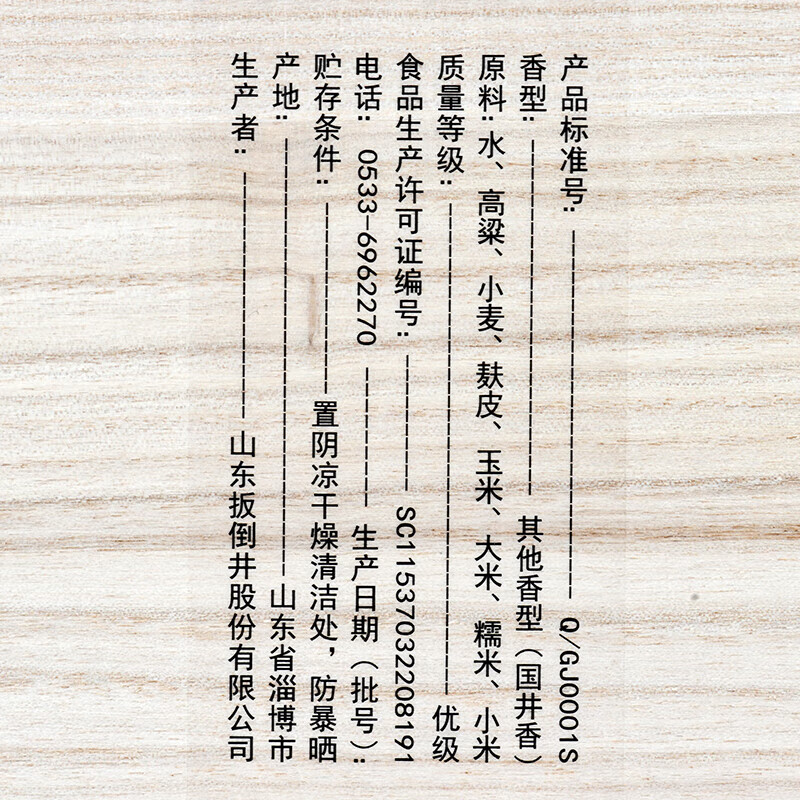 产品标准号：Q/GJ0001S
香型：其他香型（国井香）
原料：水、高粱、小麦、麸皮、玉米、大米、糯米、小米
质量等级：优级
食品生产许可证编号：SC11537032208191
电话：0533-6962270 生产日期（批号）：
贮存条件：置阴凉干燥清洁处，防暴晒
产地：山东省淄博市
生产者：山东扳倒井股份有限公司